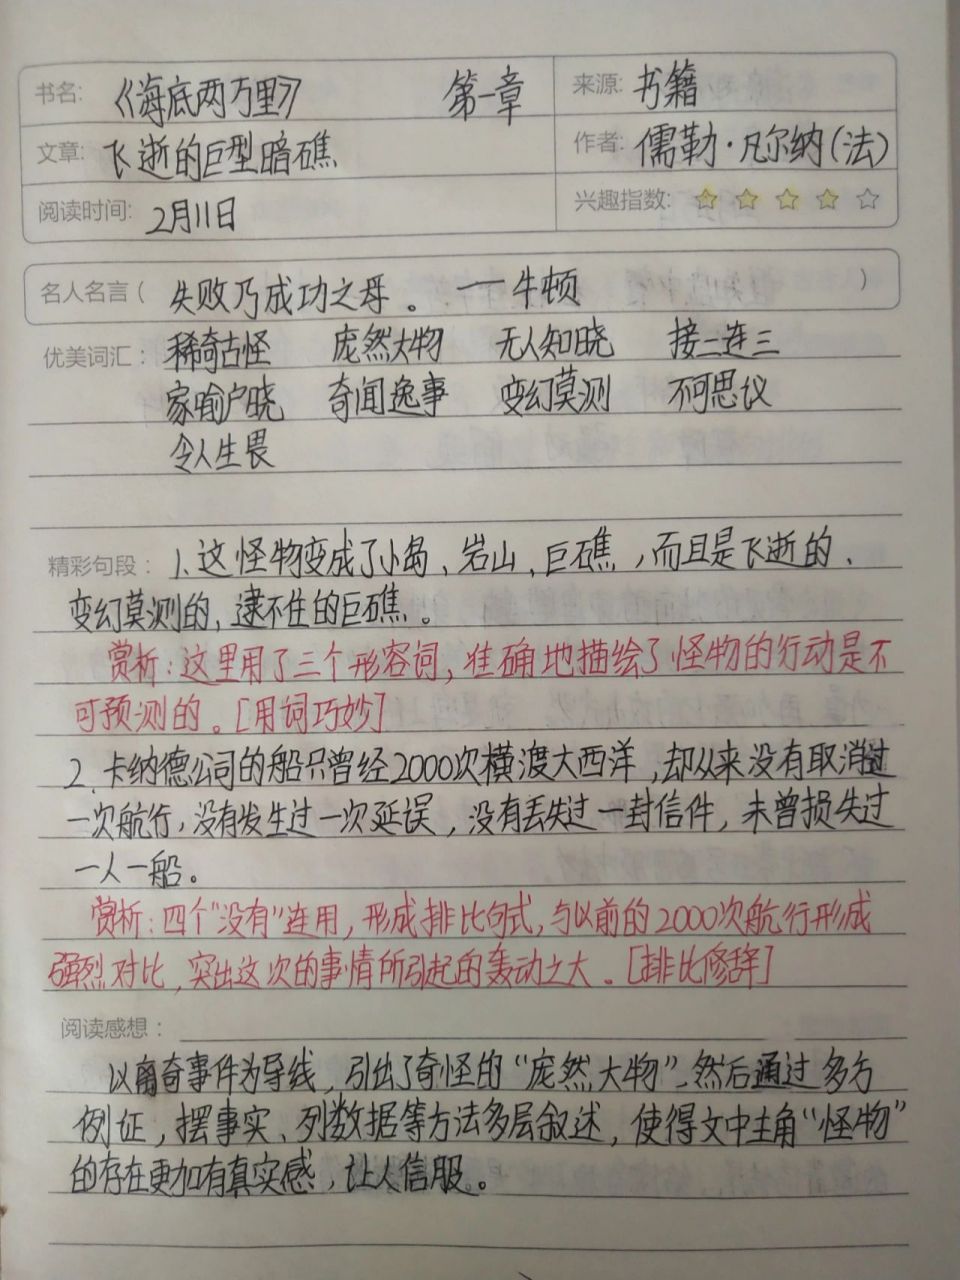 书名: 《海底两万里》 第一章 来源: 书籍
文章: 飞逝的巨型暗礁 作者: 儒勒·凡尔纳(法)
阅读时间: 2月11日 兴趣指数:
名人名言( 失败乃成功之母。——牛顿 )
优美词汇: 稀奇古怪 庞然大物 无人知晓 接二连三
家喻户晓 奇闻逸事 变幻莫测 不可思议
令人生畏
精彩句段: 1、这怪物变成了小岛、岩山、巨礁,而且是飞逝的、
变幻莫测的,逮不住的巨礁。
赏析:这里用了三个形容词,准确地描绘了怪物的行动是不
可预测的。[用词巧妙]
2、卡纳德公司的船只曾经2000次横渡大西洋,却从来没有取消过
一次航行,没有发生过一次延误,没有丢失过一封信件,未曾损失过
一人一船。
赏析:四个"没有"连用,形成排比句式,与以前的2000次航行形成
强烈对比,突出这次的事情所引起的轰动之大。[排比修辞]
阅读感想:
以离奇事件为导线,引出了奇怪的"庞然大物",然后通过多方
例证,摆事实、列数据等方法多层叙述,使得文中主角"怪物"
的存在更加有真实感,让人信服。